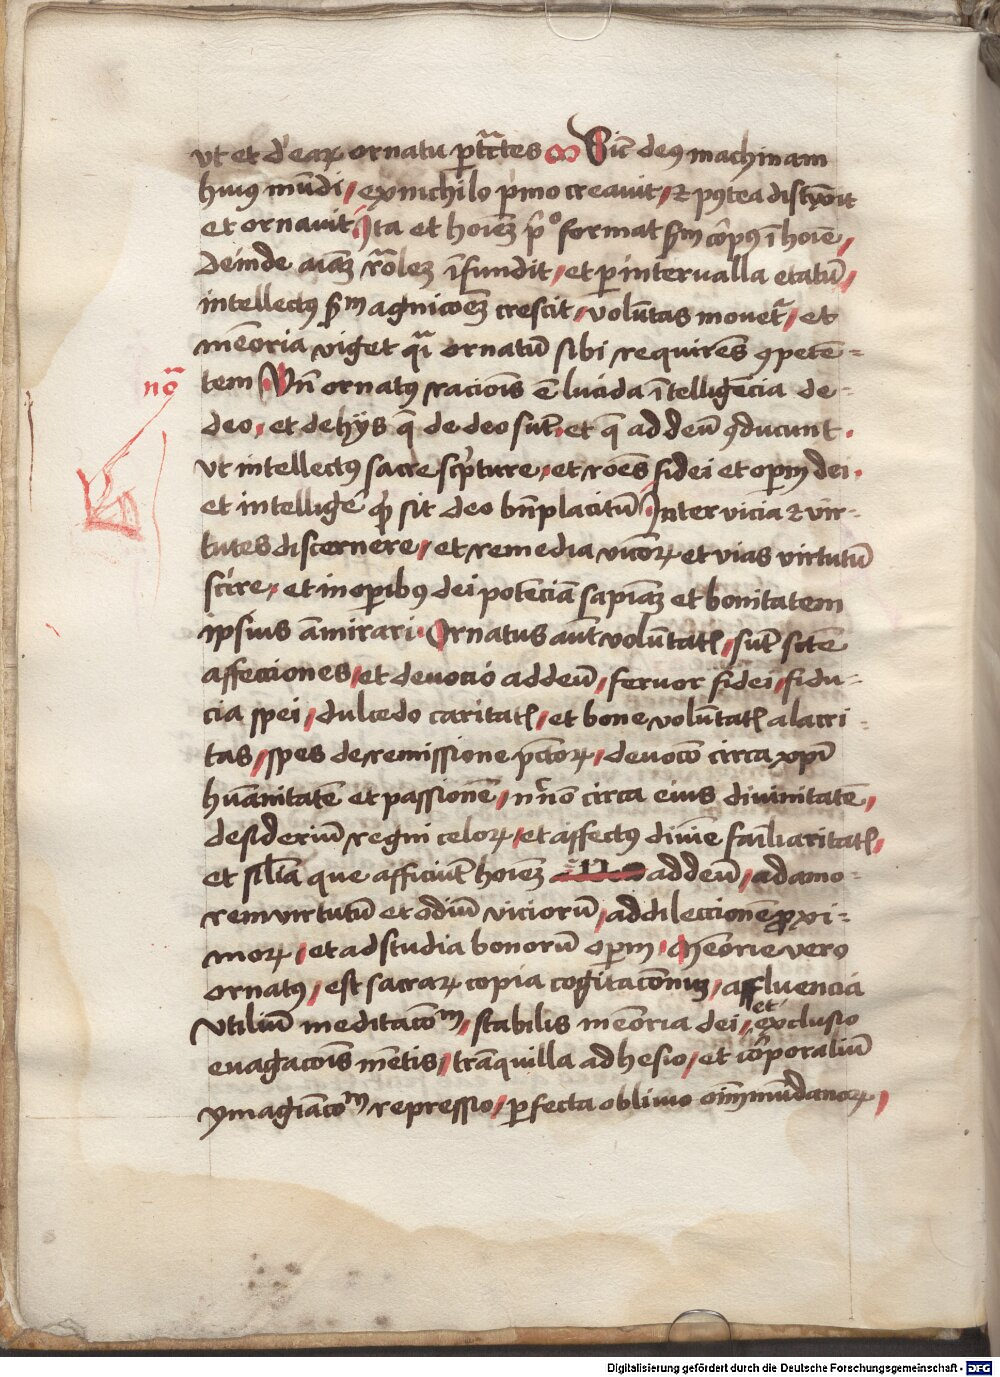 vt et de eaꝝ ornatu ꝑtractes Sic̄ deꝰ machinam
huiꝰ mūdi / ex nichilo pͥmo creauit / ⁊ pꝰtea distīxit
et ornauit Ita et hoīeꝫ pͥº format ẜm corpꝰ ī hoīe /
deinde aīaꝫ rōleꝫ īfundit / et ꝑ interualla etatū /
intellectꝰ ẜm agnicōeꝫ crescit / volūtas mouetᷣ / et
memoria viget qͣi ornatū sibi requirēs ꝯpetē-
nō
tem Vn̄ ornatꝰ racionis ē lucida ītelligēcia de
deo / et de hijs q̄ de deo sūt / et q̄ ad deū ꝯducunt
vt intellectꝰ sacre scpͥture / et rōes fidei et oꝑm dei
et intelligē qͩ sit deo bn̄placitū Inter vicia ⁊ vir-
tutes discernere / et remedia vicioꝝ et vias virtutū
scire / et in oꝑibꝰ dei potēciā sapīaꝫ et bonitatem
ipsius āmirari Ornatus aūt volūtatꝭ / sūt scē
affecciones / et deuocio ad deū / feruor fidei / fidu-
cia spei / dulcedo caritatꝭ / et bone volūtatꝭ alacri-
tas / spes de remissione pc̄toꝝ / deuocō circa xpī
hūanitatē et passionē / nͨnō circa eius diuinitatē /
desideriū regni celoꝝ / et affectꝰ diuīe fāiliaritatꝭ /
et sīlīa que afficiūt hoīeꝫ ad deū / ad amo-
rem virtutū et odiū viciorū / ad dileccionē ꝓxi-
moꝝ / et ad studia bonorū oꝑm Mēorie vero
ornatꝰ / est sacraꝝ copia cogitacōnuꝫ / affluencia
vtiliū meditacōm / stabilis mēoria dei / et exclusio
euagacōis mētis / trāquilla adhesio / et corporaliū
ymagīacōm repressio / ꝑfecta obliuio oīm mūdanoꝝ /
Digitalisierung gefördert durch die Deutsche Forschungsgemeinschaft - DFG